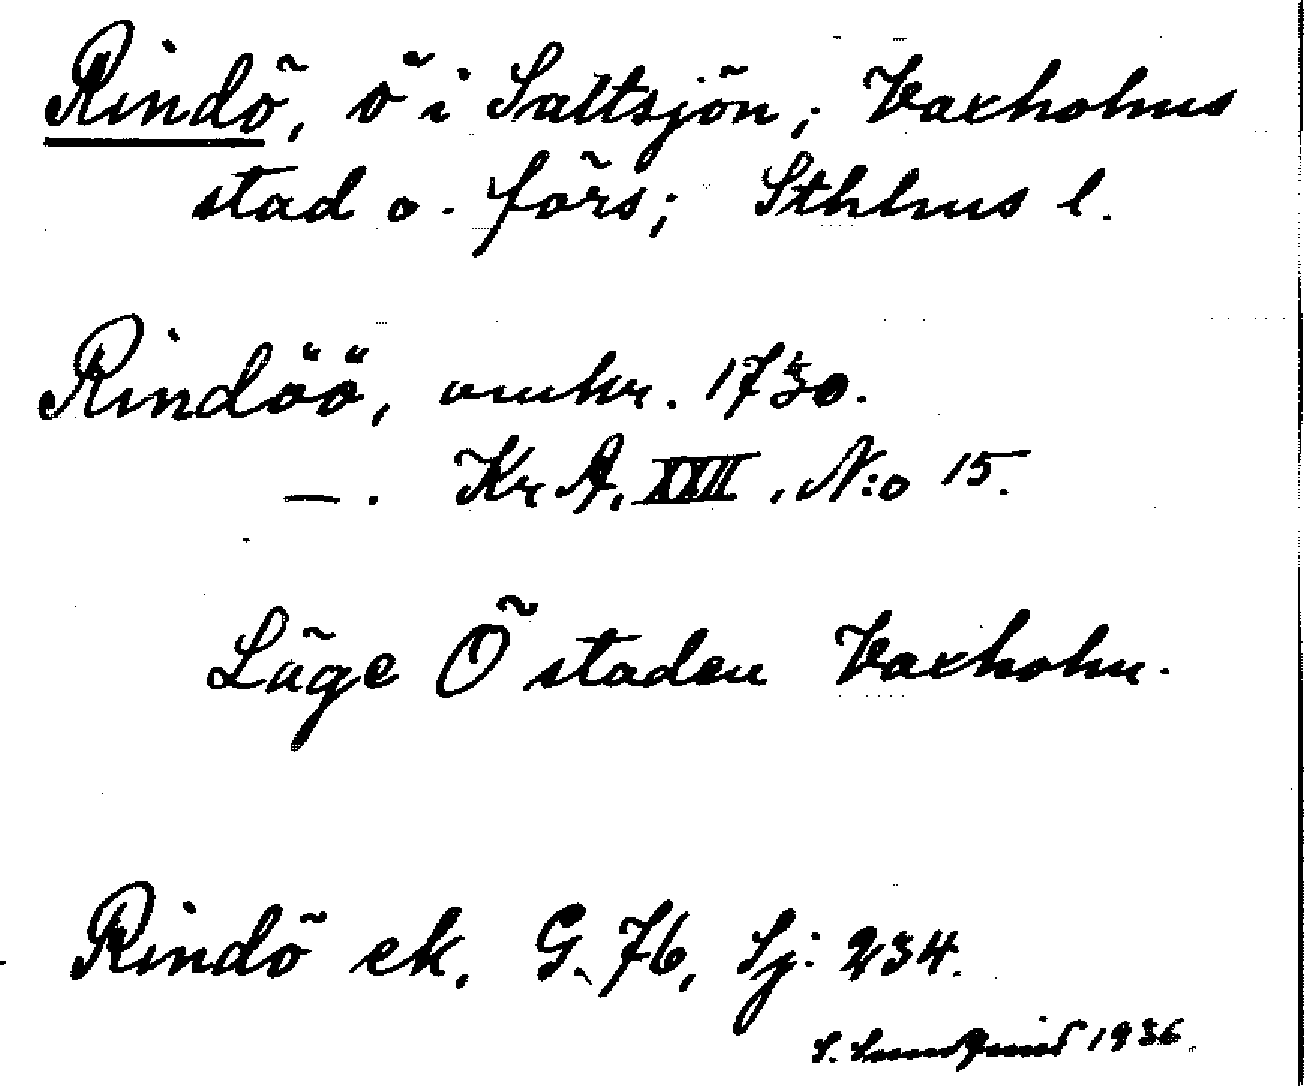 Rindö, ö i Saltsjön; Vaxholms
stad o. förs; Sthlms l.
Rindöö, omkr. 1730.
—. KrA, XXII, N:o 15.
Läge Ö staden Vaxholm.
Rindö ek. G. 76, Sj: 234.
S. Sundquist 1936.